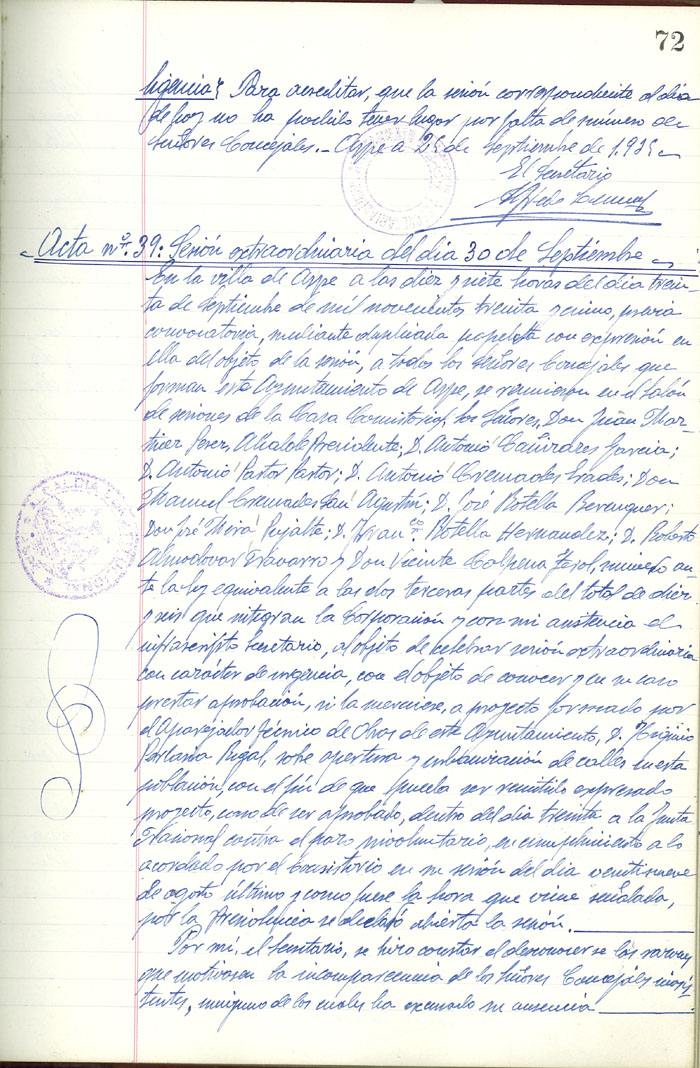 72
ligencia; Para acreditar, que la sesión correspondiente al dia
de hoy no ha podido tener lugar por falta de número de
Señores Concejales.- Aspe a 25 de Septiembre de 1.935-
El Secretario
Alfredo
Acta nº. 39: Sesión extraordinaria del dia 30 de Septiembre
En la villa de Aspe a las diez y siete horas del dia trein-
ta de Septiembre de mil novecientos treinta y cinco, previa
convocatoria, mediante duplicada papeleta con expresión en
ella del objeto de la sesión, a todos los Señores Concejales que
forman este Ayuntamiento de Aspe, se reunieron en el Salón
de sesiones de la Casa Consistorial, los Señores, Don Juan Mar-
tinez Perez, Alcalde Presidente; D. Antonio Cañizares Garcia;
D. Antonio Pastor Pastor; D. Antonio Cremades Erades; Don
Manuel Cremades San Agustín; D. José Botella Berenguer;
Don José Mira Pujalte; D. Franco Botella Hernandez; D. Roberto
Almodovar Navarro y Don Vicente Calpena número an-
te la ley equivalente a las dos terceras partes del total de diez
y seis que integran la Corporación y con mi asistencia el
infrascripto Secretario, al objeto de celebrar sesión extraordinaria
con carácter de urgencia, con el objeto de conocer y en su caso
prestar aprobación, si la mereciese, a proyecto formado por
el Aparejador Técnico de Obras de este Ayuntamiento, D. Higinio
Perlasia Bigal, sobre apertura y urbanización de calles en esta
población, con el fin de que pueda ser remitido expresado
proyecto, caso de ser aprobado, dentro del dia treinta a la Junta
Nacional contra el paro involuntario, en cumplimiento a lo
acordado por el Consistorio en su sesión del dia veintinueve
de agosto último y como fuese la hora que viene señalada,
por la Presidencia se declaró abierta la sesión.
Por mi, el Secretario, se hizo constar el desconocerse las razones
que motivasen la incomparecencia de los Señores Concejales inasis-
tentes, ninguno de los cuales ha excusado su ausencia